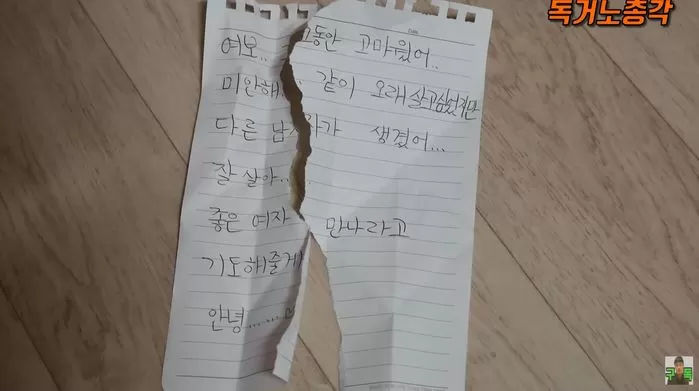 독거노총각
여보.. 그동안 고마웠어..
미안해.. 같이 오래 살고싶었지만
다른 남자가 생겼어...
잘 살아..
좋은 여자 만나라고
기도해줄게
안녕......
구독